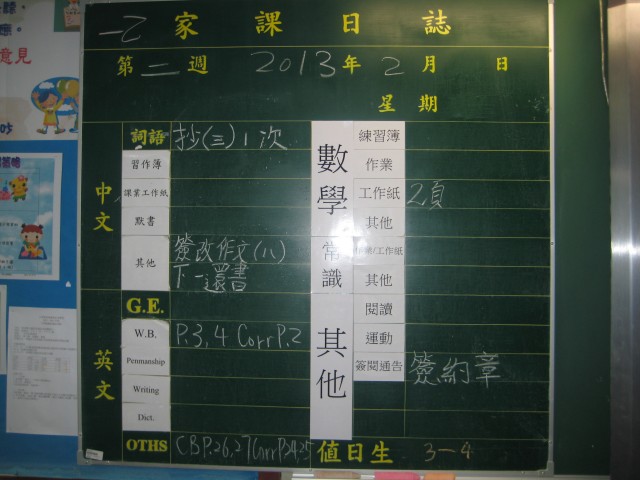 意見
一乙 家課日誌
第二週 2013年2月 日
星期
中文
詞語 抄(三)1次
習作簿
課業工作紙
默書
其他 簽改作文(八)
下一還書
英文
G.E.
W.B. P.3,4 Corr P.2
Penmanship
Writing
Dict.
OTHS CB P.26,27 Corr P.24,25
數學
練習簿
作業
工作紙 2頁
其他
常識
作業/工作紙
其他
其他
閱讀
運動
簽閱通告 簽約章
值日生 3-4